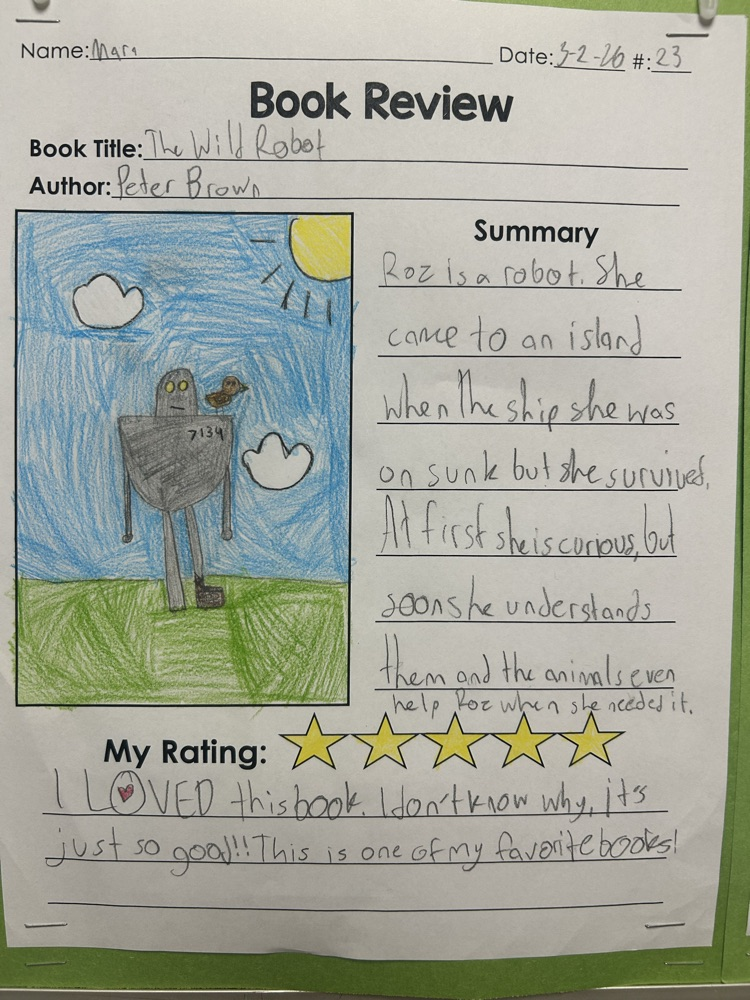 Name: Mara Date: 3-2-26 #: 23
Book Review
Book Title: The Wild Robot
Author: Peter Brown
7134
Summary
Roz is a robot. She
came to an island
when the ship she was
on sunk but she survived.
At first she is curious, but
soon she understands
them and the animals even
help Roz when she needed it.
My Rating:
I LOVED this book. I don't know why, it's
just so good!! This is one of my favorite books!